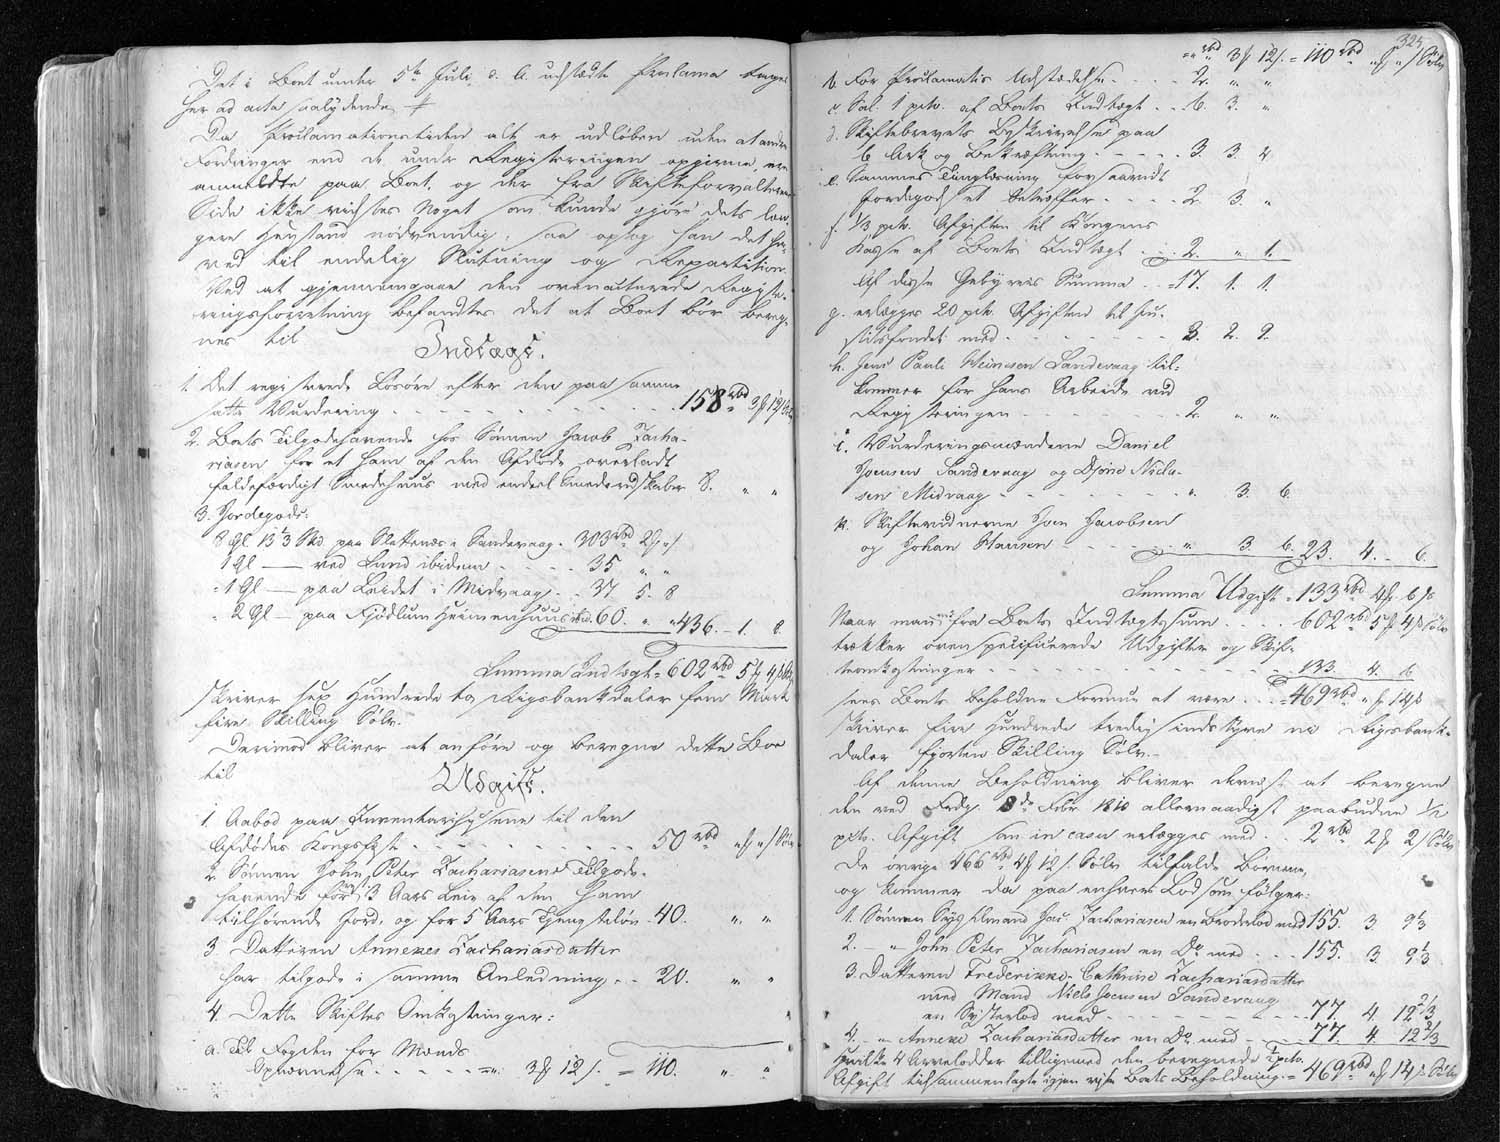 Det i Boet under 5te Juli d. A. udstædte Proclama tages
her ad acta saalydende #
Da Proclamationstiden alt er udløben uden at andre
Fordringer end de under Registeringen opgivne ere
anmeldte paa Boet, og der fra Skifteforvalterens
Side ikke vidstes Noget som kunde gjøre dets læn-
gere Henstand nødvendig, saa optog han det her-
ved til endelig Slutning og Repartition.
Ved at gjennemgaae den ovenacterede Registe-
ringsforretning befandtes det at Boet bør bereg-
nes til
Indtægt.
1. Det registerede Løsøre efter den paa samme
satte Vurdering - - - 158 rbd 3 ℳ 12 ß Sølv
2. Boets Tilgodehavende hos Sønnen Jacob Zacha-
riasen for et ham af den Afdøde overladt
faldefærdigt Smedehuus med endeel Smederedskaber 8. " "
3. Jordegods:
8 Gl. 13 1/3 Skd. paa Slettenæs i Sandevaag - 303 rbd 2 ℳ " ß
1 Gl — ved Lund ibidem - - - 35 " "
1 Gl — paa Leidet i Midvaag - - 37 5. 8
2 Gl — paa Fjødlum Heimenhuus ibid. 60. " " 436. - 1. 8.
Summa Indtægt = 602 rbd 5 ℳ 4 ß Sølv
skriver sex Hundrede to Rigsbankdaler fem Mark
fire Skilling Sølv.
Derimod bliver at anføre og beregne dette Boe
til
Udgift.
1. Aabod paa Inventarihusene til den
Afdødes Kongsfæst - - - 50 rbd " ℳ " ß Sølv
2. Sønnen John Peter Zachariasens Tilgode-
havende for 13 Aars Leie af den ham
tilhørende Jord, og for 5 Aars Tjenesteløn - 40. " "
3 Datteren Annexes Zachariasdatter
har tilgode i samme Anledning - - 20. " "
4. Dette Skiftes Omkostninger:
a. Til Fogden for Mænds
Opnævnelse - - - = " 3 ℳ 12 ß. = 110. " "
325
= " rbd 3 ℳ 12 ß. = 110 rbd " ℳ " ß Sølv
b. For Proclamatis Udstædelse - - - 2. " "
c. Sal. 1 pct. af Boets Indtægt - - 6. 3. "
d. Skiftebrevets Beskrivelse paa
6 Ark og Bekræftning - - - 3. 3. 4
e. Sammes Tinglæsning forsaavidt
Jordegodset betræffer - - - 2. 3. "
f. 1/3 pct. Afgiften til Kongens
Kasse af Boets Indtægt - - 2. " 1.
Af disse Gebyrers Summa - - = 17. 1. 1.
g. erlægges 20 pct. Afgiften til Ju-
stitsfondet med - - - 3. 2. 9.
h. Jens Pauli Heinesen Sandevaag til-
kommer for hans Arbeide ved
Registeringen - - - 2. " "
i. Vurderingsmændene Daniel
Joensen Sandevaag og Djone Nicla-
sen Midvaag - - - " 3. 6.
k. Skiftevidnerne Joen Jacobsen
og Johan Hansen - - - " 3. 6. 23. 4. 6.
Summa Udgift = 133 rbd 4 ℳ 6 ß
Naar man nu fra Boets Indtægtssum - - - 602 rbd 5 ℳ 4 ß Sølv
trækker ovenspecificerede Udgifter og Skif-
teomkostninger - - - 133 4. 6
sees Boets beholdne Formue at være - - = 469 rbd " ℳ 14 ß
skriver fire Hundrede tredsindstyve ni Rigsbank-
daler fjorten Skilling Sølv.
Af denne Beholdning bliver dernæst at beregne
den ved Frdg. 8de Febr. 1810 allernaadigst paabudne 1/2
pct. Afgift som in casu erlægges med - - 2 rbd 2 ℳ 2 ß Sølv
De øvrige 466 rbd 4 ℳ 12 ß. Sølv tilfalde Børnene
og kommer da paa enhvers Lod som følger:
1. Sønnen Zachariasen en Broderlod med 155. 3 9 1/3
2. - " John Peter Zachariasen en Do med - - 155. 3 9 1/3
3. Datteren Frederikke Cathrine Zachariasdatter
med Mand Niels Joensen Sandevaag
en Søsterlod med - - - 77. 4. 12 2/3
4. - " Annexe Zachariasdatter en Do med - - 77. 4. 12 2/3
Hvilke 4 Arvelodder tilligemed den beregnede 1/2 pct.
Afgift tilsammenlagte igjen vise Boets Beholdning = 469 rbd " ℳ 14 ß Sølv